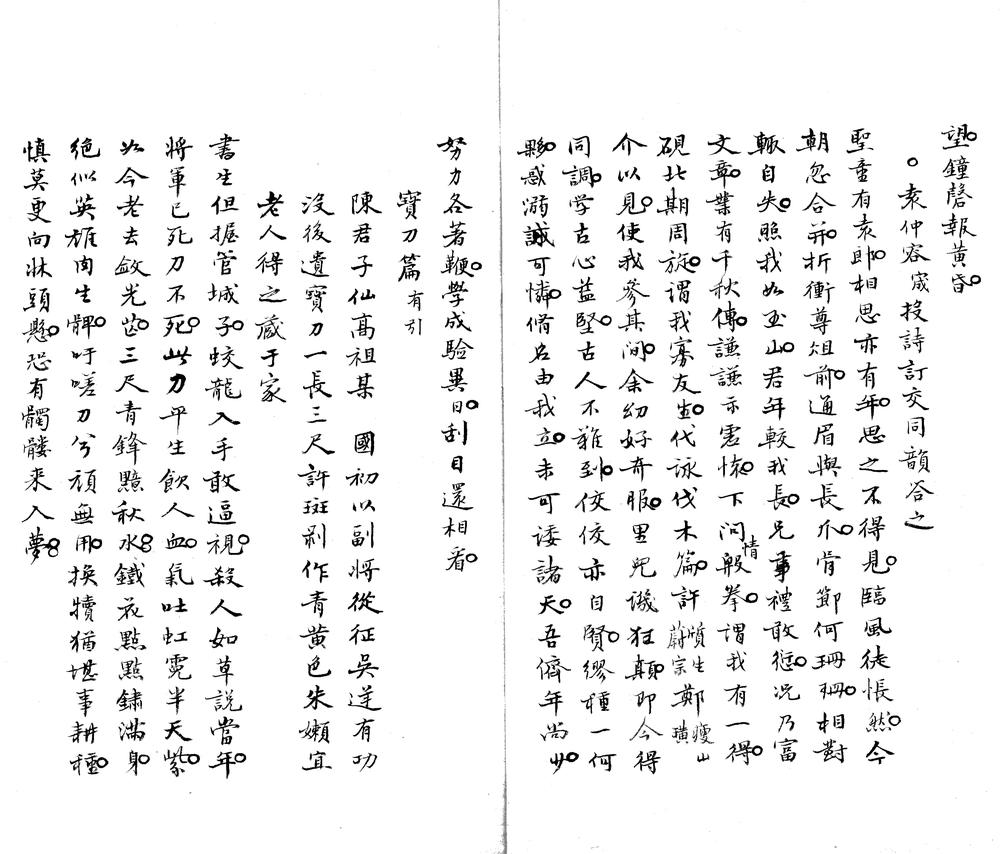 望鐘磬報黃昏
袁仲容宬投詩訂交同韻答之
聖童有袁郎相思亦有年思之不得見臨風徒悵然今
朝忽合并折衝尊俎前通眉與長爪骨節何珊珊相對
輒自失照我如玉山君年較我長兄事禮敢愆況乃富
文章業有千秋傳謙謙示雲牋下問情般拳謂我有一得
硯北期周旋謂我寡友生代詠伐木篇許質生蔚宗鄭瘦山璜
介以見使我參其間余幼好奇服里兒譏狂顛即今得
同調学古心益堅古人不難到佼佼亦自賢繆種一何
夥惑溺誠可憐脩名由我立未可诿諸天吾儕年尚少
努力各著鞭學成驗異日刮目還相看
寶刀篇有引
陳君子仙高祖某 國初以副將從征吳逆有功
沒後遺寶刀一長三尺許斑剝作青黃色朱嬾宜
老人得之藏于家
書生但握管城子蛟龍入手敢逼視殺人如草說當年
將軍已死刀不死此刀平生飲人血氣吐虹霓半天紫
如今老去斂光芒三尺青鋒黯秋水鐵花點點鏽滿身
絕似英雄肉生髀吁嗟刀兮頑無用換犢猶堪事耕種
慎莫更向牀頭懸恐有髑髏来入夢